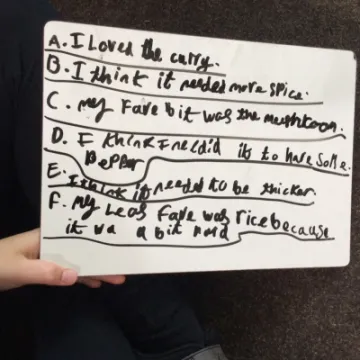 A. I Loved the curry.
B. I think it needed more spice.
C. my Fave bit was the mushroom.
D. I think I needid it to have some
Pepper
E. I think it needed to be thicker.
F. my Leas Fave was rice because
it wa a bit